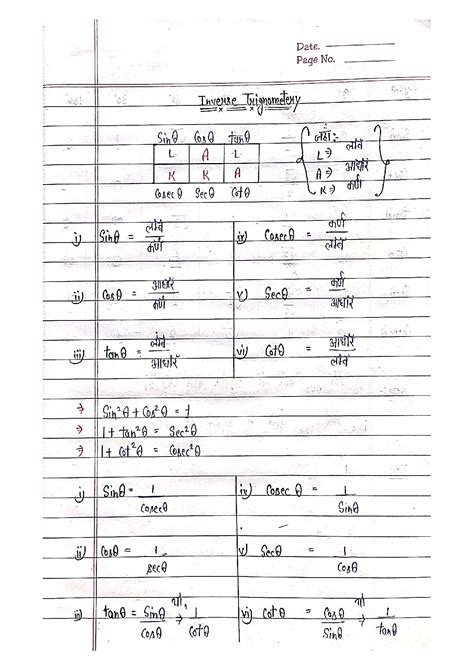 Date.
Page No.
Inverse Trignometery
Sinθ Cosθ tanθ
L A L
K K A
Cosecθ Secθ Cotθ
जहाँ :-
L ⇒ लांब
A ⇒ आधार
K ⇒ कर्ण
i) Sinθ = लांब / कर्ण
iv) Cosecθ = कर्ण / लांब
ii) Cosθ = आधार / कर्ण
v) Secθ = कर्ण / आधार
iii) tanθ = लांब / आधार
vi) Cotθ = आधार / लांब
→ Sin²θ + Cos²θ = 1
→ 1 + tan²θ = Sec²θ
→ 1 + Cot²θ = Cosec²θ
i) Sinθ = 1 / Cosecθ
iv) Cosecθ = 1 / Sinθ
ii) Cosθ = 1 / Secθ
v) Secθ = 1 / Cosθ
iii) tanθ = Sinθ / Cosθ या, ⇒ 1 / Cotθ
vi) Cotθ = Cosθ / Sinθ या ⇒ 1 / tanθ